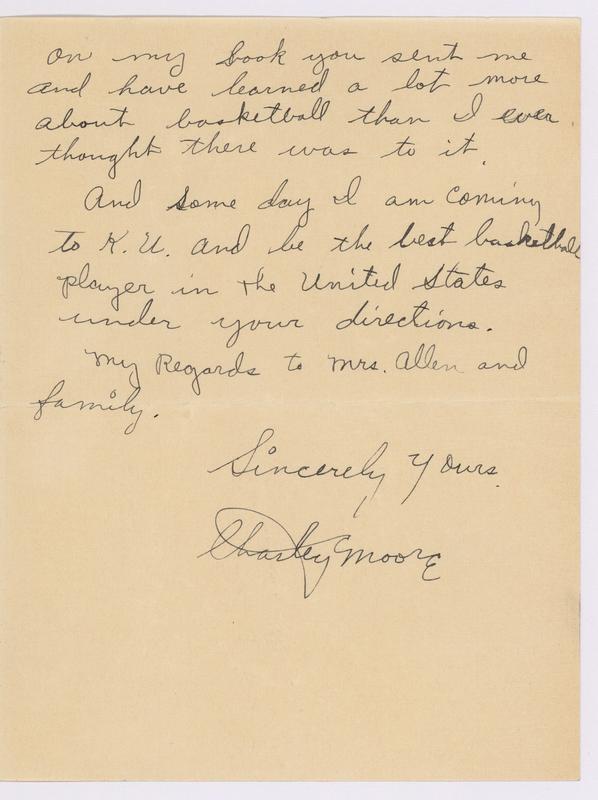 on my book you sent me
and have learned a lot more
about basketball than I ever
thought there was to it.
And some day I am coming
to K. U. and be the best basketball
player in the United States
under your directions.
My Regards to Mrs. Allen and
family.
Sincerely Yours.
Charley Moore